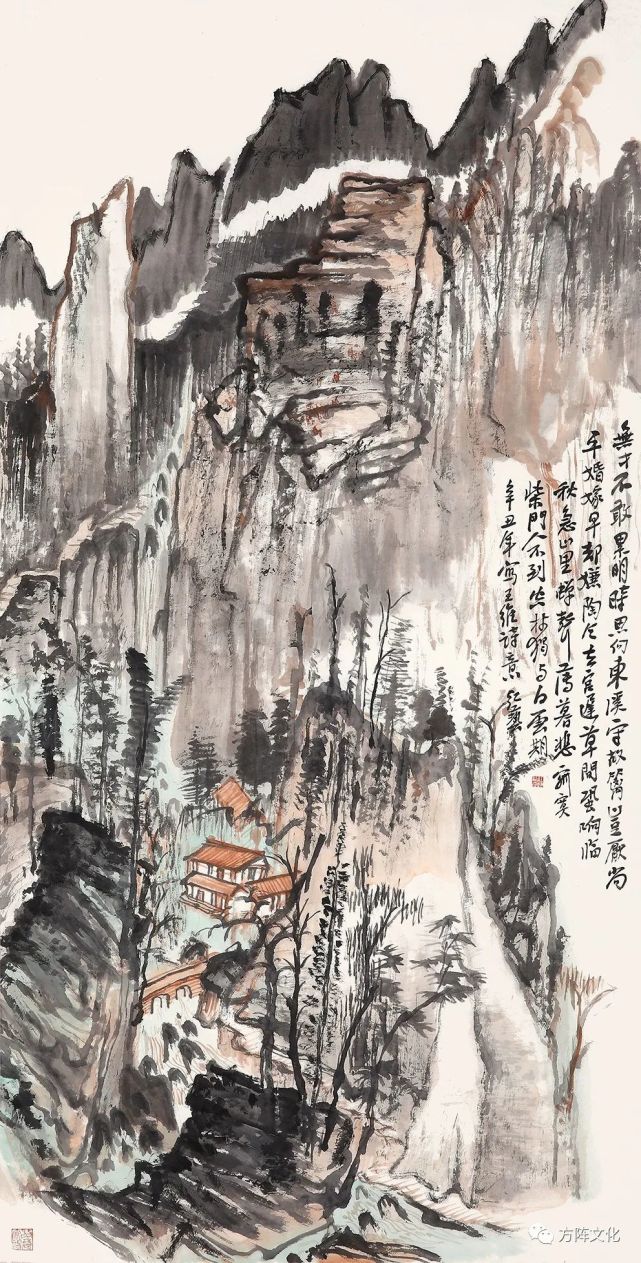 無才不敢累明時思向東溪守故籬豈厭尚
平婚嫁早却嫌陶令去官遲草間蛩响临
秋急山里蟬聲薄暮悲寂寞
柴門人不到空林獨与白雲期
辛丑年寫王維詩意
方阵文化